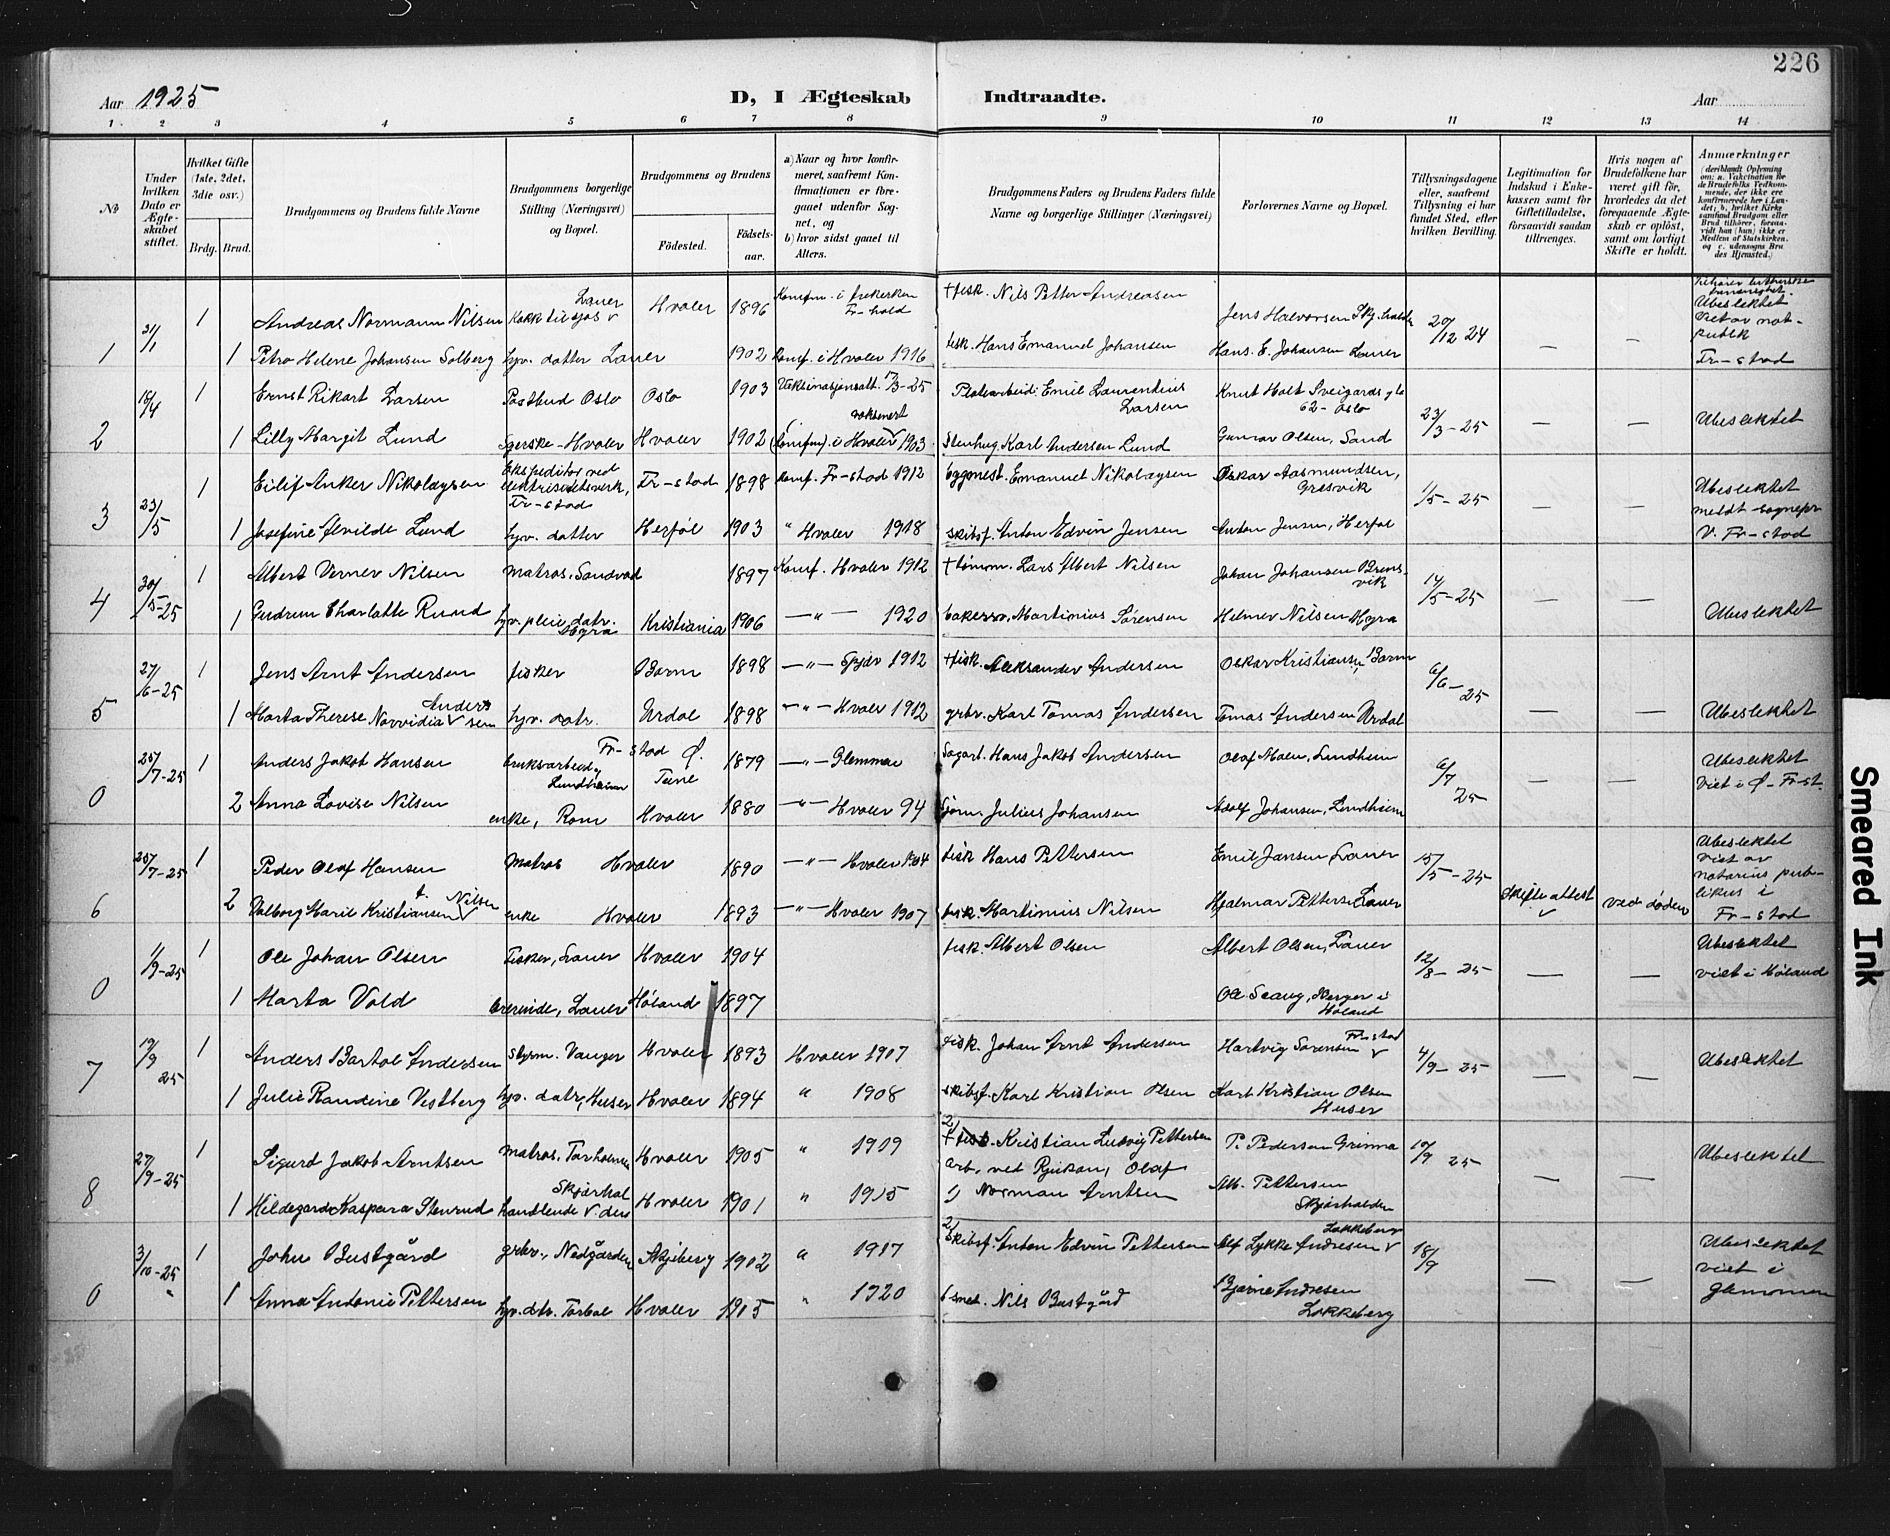 226
Aar 1925
D, I Ægteskab Indtraadte.
Aar
1 2 3 4 5 6 7 8 9 10 11 12 13 14
№
Under hvilken Dato er Ægteskabet stiftet.
Hvilket Gifte (1ste, 2det, 3die osv.)
Brdg. Brud.
Brudgommens og Brudens fulde Navne
Brudgommens borgerlige Stilling (Næringsvei) og Bopæl.
Brudgommens og Brudens
Födested.
Födselsaar.
a) Naar og hvor konfirmeret, saafremt Konfirmationen er foregaaet udenfor Sognet, og
b) hvor sidst gaaet til Alters.
Brudgommens Faders og Brudens Faders fulde Navne og borgerlige Stillinger (Næringsvei)
Forlovernes Navne og Bopæl.
Tillysningsdagene eller, saafremt Tillysning ei har fundet Sted, efter hvilken Bevilling.
Legitimation for Indskud i Enkekassen samt for Giftetilladelse, forsaavidt saadan tiltrænges.
Hvis nogen af Brudefolkene har været gift för, hvorledes da det foregaaende Ægteskab er oplöst, samt om lovligt Skifte er holdt.
Anmærkninger
(deriblandt Oplysning om: a. Vakcination for de Brudefolks Vedkommende, der ikke ere konfirmerede her i Landet; b. hvilket Kirkesamfund Brudgom eller Brud tilhörer, forsaavidt han (hun) ikke er Medlem af Statskirken. og c. udensogns Brudes Hjemsted.)
1 31/1 1 Andreas Normann Nilsen Kokk tilsjøs Lauer Hvaler 1896 Konfm. i frekerken Fr-hald + fisk. Nils Petter Andreasen Jens Halvorsen Skj.halden 20/12 24 Ubeslektet
Viet av not. publik Fr-stad
1 Petra Helene Johansen Solberg hjv. datter Lauer 1902 Konf. i Hvaler 1916 fisk. Hans Emanuel Johansen Hans. E. Johansen Lauer — —
2 18/4 1 Ernst Rikart Larsen Postbud Oslo Oslo 1903 Vaksinasjonsatt. 17/3-25 Platearbeid. Emil Laurentius Larsen Knut Holt Sveigårds gt. 62 - Oslo 23/3-25 — — Ubeslektet
1 Lilly Margit Lund Hvaler Hvaler 1902 i Hvaler 1903 Stenhug. Karl Andersen Lund Gunnar Olsen, Sand
3 23/5 1 Eilif Anker Nikolaysen Ekspeditør ved elektrisitetsverk, Fr-stad Fr-stad 1898 Konf. Fr-stad 1912 byggmest. Emanuel Nikolaysen Oskar Aasmundsen, Gresvik 1/5-25 — — Ubeslektet
meldt sognepr V. Fr-stad
1 Josefine Alvilde Lund hjv. datter Herføl 1903 " Hvaler 1918 skibsf. Anton Edvin Jensen Anton Jensen, Herføl
4 30/5-25 1 Albert Verner Nilsen Matros, Sandvad 1897 Konf. Hvaler 1912 + tømm. Lars Albert Nilsen Johan Johansen Brensvik 14/5-25 — — Ubeslektet
1 Gudrun Charlotte Rund hjv. pleiedatr. Kristiania 1906 — " — 1920 Martinius Sørensen Helmer Nilsen
5 27/6-25 1 Jens Arnt Andersen fisker Barm 1898 — " — Spjær 1912 + fisk. Aleksander Andersen Oskar Kristiansen, Barm 6/6-25 — — Ubeslektet
1 Marta Therese Norvidia Andersen hjv. datr. Urdal 1898 — " — Hvaler 1912 grbr. Karl Tomas Andersen Tomas Andersen Urdal
0 25/7-25 1 Anders Jakob Hansen bruksarbeid. Lundheim Fr-stad Ø. Tune 1879 — " — Glemmen Sagarb. Hans Jakob Andersen Olaf Moen, Lundheim 6/7 25 — — Ubeslektet
Viet i Ø-Fr-st.
2 Anna Lovise Nilsen enke, Rom Hvaler 1880 — " — Hvaler 94 Sjøm. Julius Johansen Adolf Johansen, Lundheim
6 25/7-25 1 Peder Olaf Hansen Matros Hvaler 1890 — " — Hvaler 1904 fisk. Hans Pettersen Emil Jansen Lauer 15/5-25 Skifteattest ved døden Ubeslektet
viet av notarius publikus i Fr-stad
2 Valborg Marie Kristiansen f. Nilsen enke Hvaler 1893 — " — Hvaler 1907 fisk. Martinius Nilsen Hjalmar Pettersen Lauer
0 1/9-25 1 Ole Johan Olsen Fisker, Lauer Hvaler 1904 fisk. Albert Olsen Albert Olsen, Lauer 12/8-25 — — Ubeslektet
viet i Høland
1 Marta Vold Lauer Høland 1897 Ole Scaug, i Høland
7 19/9 25 1 Anders Bartol Andersen Styrm. Vauger Hvaler 1893 Hvaler 1907 fisk. Johan Arnt Andersen Hartvig Sørensen Fr-stad 4/9-25 — — Ubeslektet
1 Julie Randine Vestberg hjv. datr, Huser Hvaler 1894 " 1908 skibsf. Karl Kristian Olsen Karl Kristian Olsen Huser
8 27/9-25 1 Sigurd Jakob Arntsen Matros, Torholmen Hvaler 1905 " 1919 2) + fisk. Kristian Ludvig Pettersen
arb. ved Rjukan, Olaf P. Pedersen Grimma 10/9 25 — — Ubeslektet
1 Hildegard Kaspara Stenrud handlende Skjærhalden Hvaler 1901 " 1915 1) Norman Arntsen Alb. Pettersen Skjærhalden
0 3/10-25 1 John Bustgård grbr., Nedgården Skjeberg 1902 " 1917 2) Skibsf. Anton Edvin Pettersen Alf Lykke Andresen Lokkeberg 18/9 — — Ubeslektet
viet i Glemmen
1 Anna Antonie Pettersen hjv. dtr. Torbal Hvaler 1905 " 1920 Nils Bustgård Bjarne Andresen Lokkeberg
Smeared Ink